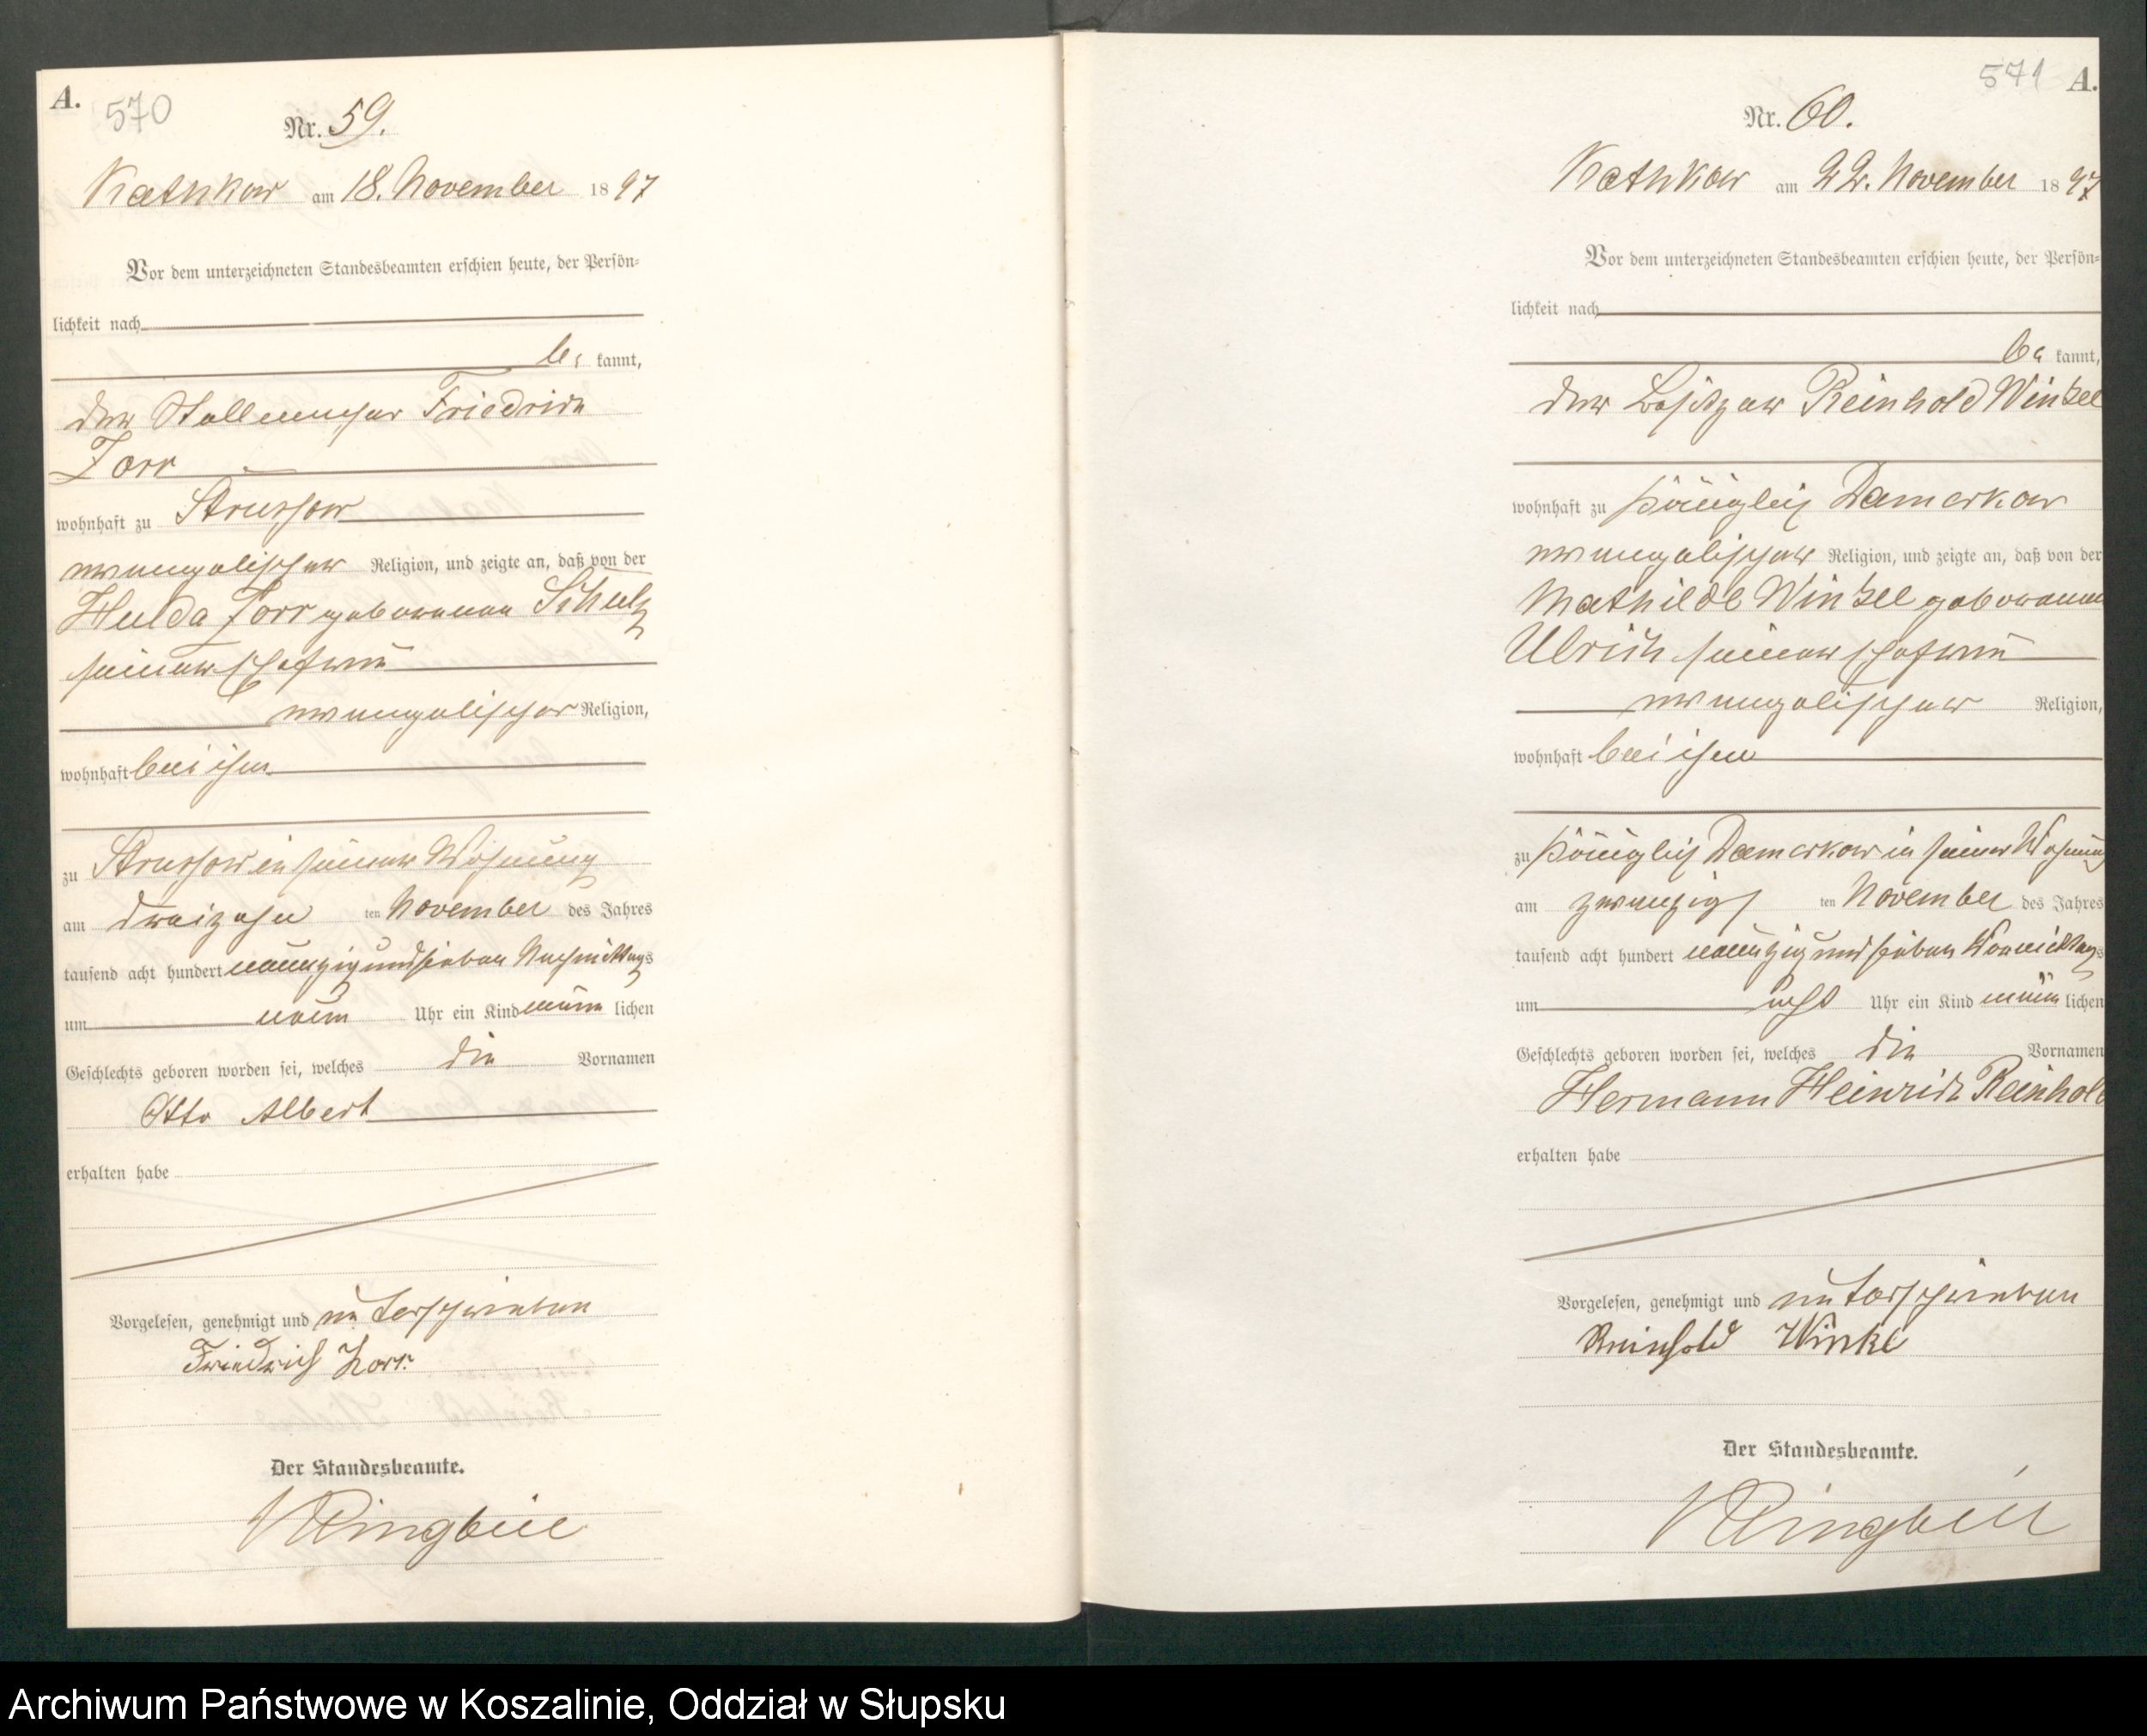 A.
570
Nr. 59.
Rathkow am 18. November 1897
Vor dem unterzeichneten Standesbeamten erschien heute, der Persön-
lichkeit nach
be kannt,
der Friedrich
Torr
wohnhaft zu Strussow
evangelischer Religion, und zeigte an, daß von der
Hulda Torr geborenen Schulz
seiner Ehefrau
evangelischer Religion,
wohnhaft bei ihm
zu Strussow in seiner Wohnung
am dreizehn ten November des Jahres
tausend acht hundert neunzig und sieben Nachmittags
um neun Uhr ein Kind männ lichen
Geschlechts geboren worden sei, welches die Vornamen
Otto Albert
erhalten habe
Vorgelesen, genehmigt und unterschrieben
Friedrich Torr.
Der Standesbeamte.
Klingbeil
571 A.
Nr. 60.
Rathkow am 22. November 1897
Vor dem unterzeichneten Standesbeamten erschien heute, der Persön-
lichkeit nach
be kannt,
der Besitzer Reinhold Winkel
wohnhaft zu Königlich Damerkow
evangelischer Religion, und zeigte an, daß von der
Mathilde Winkel geborenen
Ulrich seiner Ehefrau
evangelischer Religion,
wohnhaft bei ihm
zu Königlich Damerkow in seiner Wohnung
am zwanzigs ten November des Jahres
tausend acht hundert neunzig und sieben Vormittags
um acht Uhr ein Kind männ lichen
Geschlechts geboren worden sei, welches die Vornamen
Hermann Heinrich Reinhold
erhalten habe
Vorgelesen, genehmigt und unterschrieben
Reinhold Winkel
Der Standesbeamte.
Klingbeil
Archiwum Państwowe w Koszalinie, Oddział w Słupsku